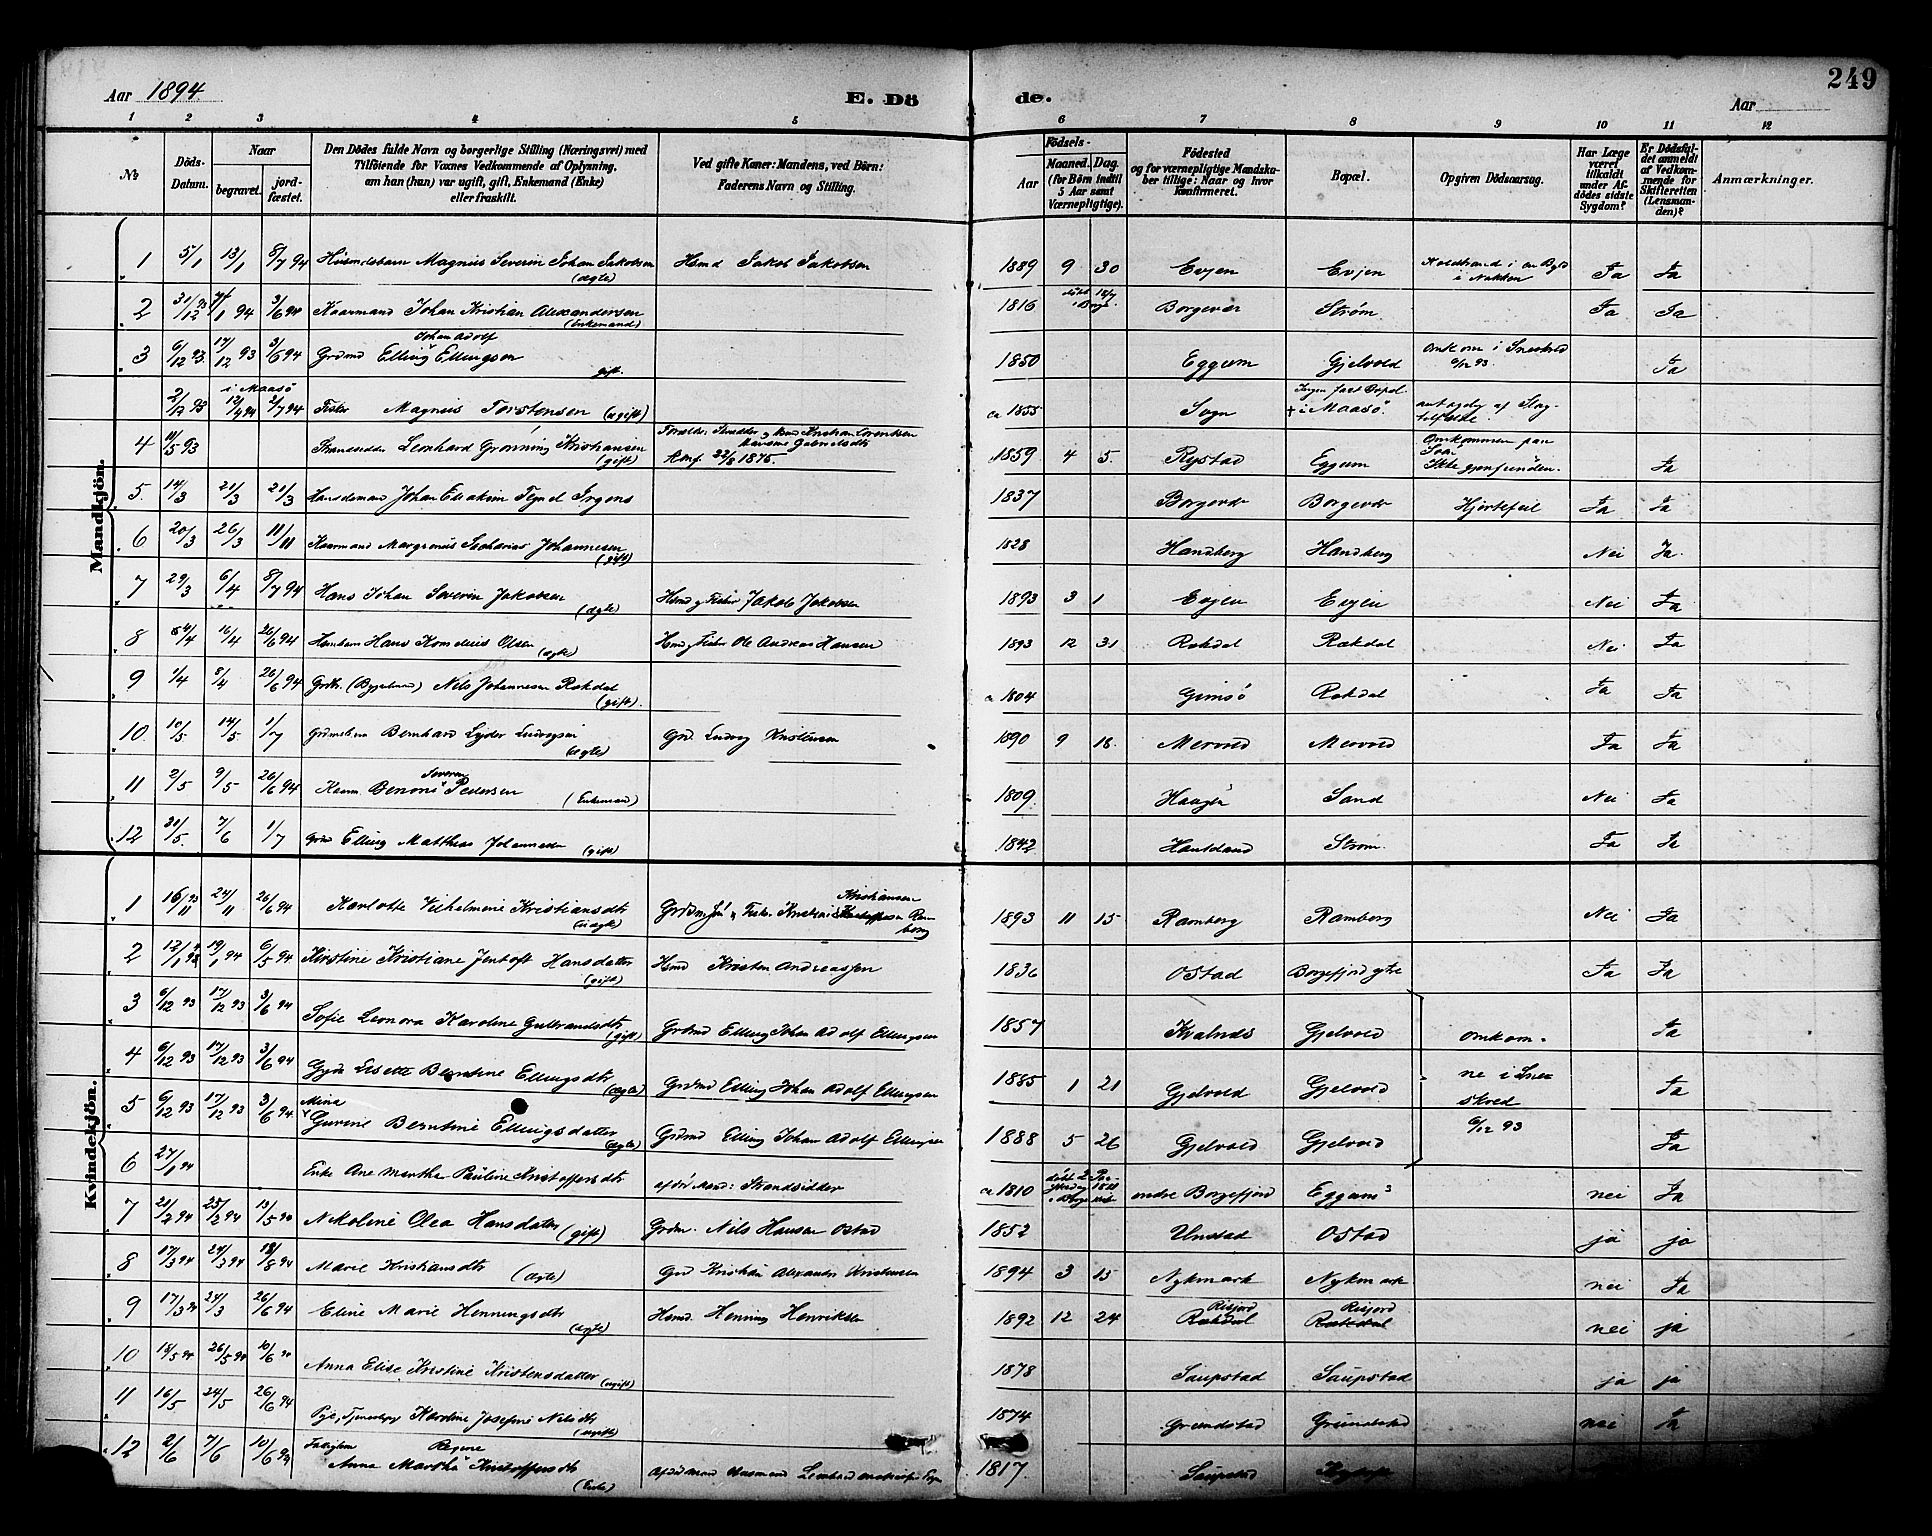 249
Aar 1894. E. Dö de. Aar
1 2 3 4 5 6 7 8 9 10 11 12
No
Döds-Datum.
Naar
begravet.
jord-fæstet.
Den Dödes fulde Navn og borgerlige Stilling (Næringsvei) med
Tilföiende for Voxnes Vedkommende af Oplysning,
om han (hun) var ugift, gift, Enkemand (Enke)
eller fraskilt.
Ved gifte Koner: Mandens, ved Börn:
Faderens Navn og Stilling.
Födsels-
Aar
Maaned. Dag.
(for Börn indtil
5 Aar samt
Værnepligtige).
Födested
og for værnepligtige Mandska-
ber tillige: Naar og hvor
konfirmeret.
Bopæl.
Opgiven Dödsaarsag.
Har Læge
været
tilkaldt
under Af-
dödes sidste
Sygdom?
Er Dödsfal-
det anmeldt
af Vedkom-
mende for
Skifteretten
(Lensman-
den)?
Anmærkninger.
Mandkjön.
1 5/1 13/1 8/7 94 Magnus Severin Johan Jakobsen (ægte) Hsmd Jakob Jakobsen 1889 9 30 Evjen Evjen i Nakken Ja Ja
2 31/12 93 94 3/6 94 Kaarmand Johan Kristian Alexandersen (Enkemand) 1816 Borgevær Strøm Ja Ja
3 6/12 93 17/12 93 3/6 94 Grdmd Johan Adolf Elling Ellingsen gift. 1850 Eggum Gjelvold Omkom i Sneskred 6/12 93 Ja
2/12 93 i Maasö 12/4 94 2/7 94 Fisker Magnus Torstensen (ugift) ca 1855 Sogn Ingen fast Bopæl + i Maasö antagelig af Slagtilfælde
4 11/5 93 Leonhard Grönning Kristiansen (gift) Konf. 22/8 1875. 1859 4 5. Rystad Eggum Omkommen paa Ikke gjenfunden. Ja
5. 14/3 21/3 21/3 Johan Eliakim Irgens 1837 Borgevær Borgevær Hjertefeil Ja Ja
6 20/3 26/3 11/11 Kaarmand Zacharias Johannesen (gift) 1828 Handberg Handberg Nei Ja.
7 29/3 6/4 8/7 94 Hans Johan Severin Jakobsen (ægte) Hsmd og Fisker Jakob Jakobsen 1893 3 1 Evjen Evjen Nei Ja
8 16/4 26/6 94 Hans Kornelius Olsen (ægte) Hsmd Fisker Ole Andreas Hansen 1893 12 31 Rakdal Rækdal Nei Ja
9 1/4 8/4 26/6 94 Nils Johannesen Rækdal (gift). ca 1804 Gimsö Rækdal Ja Ja
10. 10/5 14/5 1/7 Bernhard Lyder Ludvigsen (ægte) Grd. Ludvig Kristensen 1890 9 18. Mervold Mervold Ja Ja
11 2/5 9/5 26/6 94 Kaarm. Benoni Severin Pedersen (Enkemand) 1809. Haugen Sand Nei Ja
12 31/5. 7/6 1/7 Grdmd Elling Mathias Johannesen (gift) 1842 Hautland Strøm. Ja Ja
Kvindekjön.
1 16/11 93 24/11 26/6 94 Karlotte Vilhelmine Kristiansdtr (uægte) Kristiansen Ramberg 1893 11 15 Ramberg Ramberg Nei Ja
2 12/1 94 19/1 94 6/5 94. Kirstine Kristiane Jentoft Hansdatter (gift) Hsmd Kristen Andreassen 1836 Ostad Borgefjord ytre Ja Ja
3 6/12 93 17/12 93 3/6 94 Sofie Leonora Karoline Gulbrandsdtr (gift) Grdmd Elling Johan Adolf Ellingsen 1857 Kvalnæs Gjelvold omkom- Ja
4 6/12 93 17/12 93 3/6 94 Gyda Lisette Berntine Ellingsdtr (ægte) Grdmd Elling Johan Adolf Ellingsen 1885 1 21 Gjelvold Gjelvold ne i Sneskred Ja
5 6/12 93 17/12 93 3/6 94 Mina Gurine Berntine Ellingsdatter (ægte) Grdmd Elling Johan Adolf Ellingsen 1888 5 26 Gjelvold Gjelvold 6/12 93 Ja
6 27/1 94 Enke Ane Martha Pauline Kristoffersdtr afdöd Mand: Strandsidder ca 1810 indre Borgefjord Eggum nei Ja
7 21/2 94 25/2 94 13/5 94 Nikoline Olea Hansdatter (gift) Grdm. Nils Hansen Ostad 1852 Unstad Ostad ja ja
8 17/3 94 24/3 94 18/8 94 Marie Kristiansdtr (ægte) Grd Kristian Alexander Kristensen 1894 3 15 Nykmark Nykmark nei Ja
9 17/3 94 24/3 26/6 94 Eline Marie Henningsdtr (ægte) Hsmd. Henning Henriksen 1892 12 24 Risfjord Rækdal Risfjord Rækdal nei ja
10 18/5 94 26/5 94 10/6 94 Anna Elise Kristine Kristensdatter (ugift) 1878 Saupstad Saupstad ja ja
11 16/5 24/5 26/6 94 Pige, Karoline Josefine Nilsdtr (ugift) 1874 Grundstad Grundstad nei Ja
12 2/6 7/6 10/6 94 Anna Martha Regine Kristoffersdtr (Enke) Afdöd Mand Husmand 1817. Saupstad